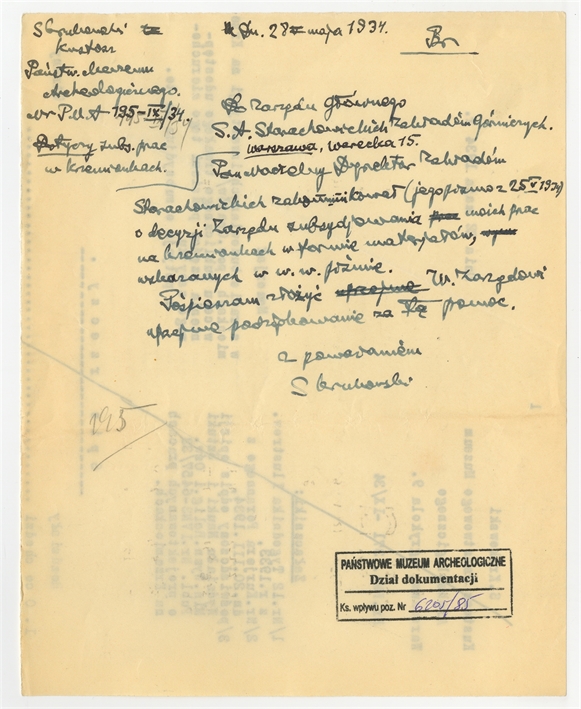 S Krukowski
Kustosz
Państw. Muzeum
Archeologicznego.
Nr P.M.A 195-IX/34.
Dotyczy subw. prac
w Krzemionkach.
Dn. 28 maja 1934.
Do Zarządu Głównego
S.A. Starachowickich Zakładów Górniczych.
Warszawa, Warecka 15.
Pan Naczelny Dyrektor Zakładów
Starachowickich zakomunikował (jego pismo z 25 V 1934)
o decyzji Zarządu subsydjowania moich prac
na Krzemionkach w formie materjałów,
wskazanych w w. w. piśmie.
Pośpieszam złożyć uprzejme W. Zarządowi
uprzejme podziękowanie za tą pomoc.
z poważaniem
S Krukowski
195
PAŃSTWOWE MUZEUM ARCHEOLOGICZNE
Dział dokumentacji
Ks. wpływu poz. Nr 6205/85